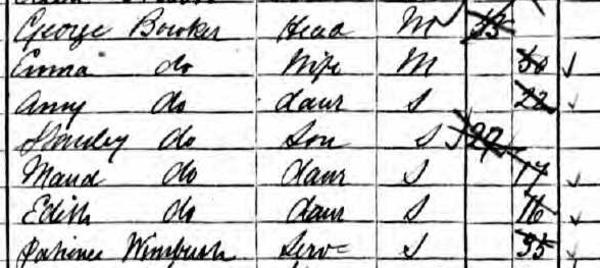 George Bowker Head M 55
Emma do Wife M 50
Amy do daur S 22
Stanley do Son S 27
Maud do daur S 17
Edith do daur S 16
Patience Wimbush Serv S 35